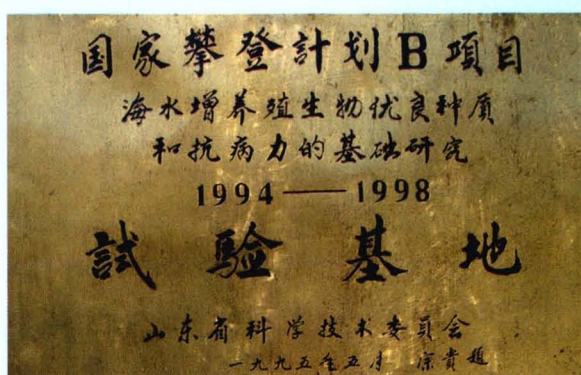 国家攀登計划B項目
海水增养殖生物优良种质
和抗病力的基础研究
1994——1998
試驗基地
山东省科学技术委員会
一九九五年五月 貴題